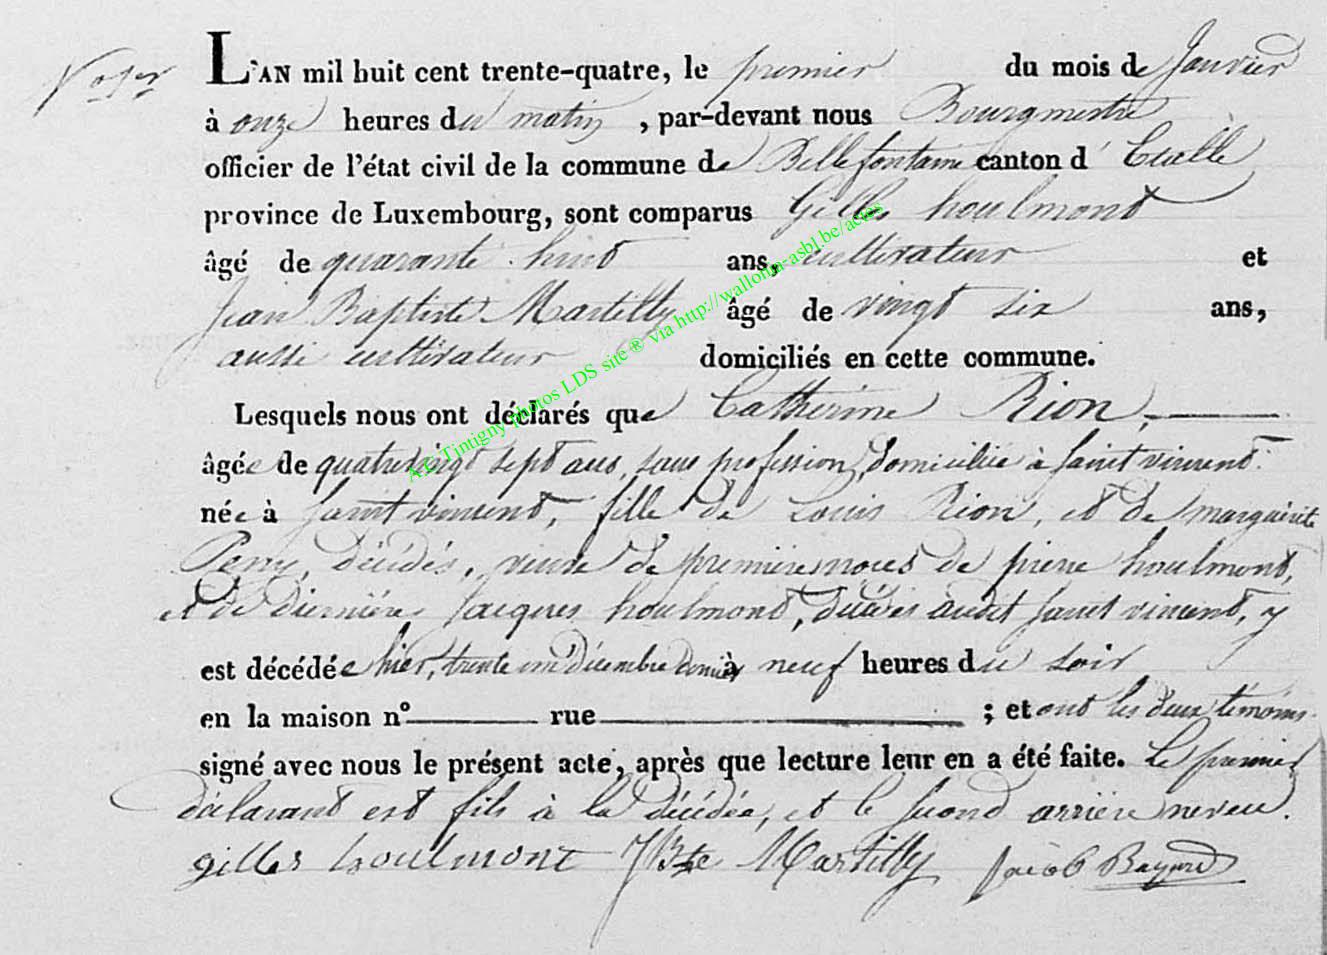 No 1er
L'AN mil huit cent trente-quatre, le premier du mois de Janvier
à onze heures du matin, par-devant nous Bourgmestre
officier de l'état civil de la commune de Bellefontaine canton d' Etalle
province de Luxembourg, sont comparus Gilles houlmont
âgé de quarante huit ans, cultivateur et
Jean Baptiste Martilly âgé de vingt six ans,
aussi cultivateur domiciliés en cette commune.
Lesquels nous ont déclarés que Catherine Rion,
âgée de quatrevingt sept ans, sans profession, domiciliée à saint vincent
née à saint vincent, fille de Louis Rion, et de marguerite
Perry, décédés, veuve de premières noces de pierre houlmont,
et de dernières Jacques houlmont, décédés audit saint vincent, y
est décédée hier, trente un décembre dernier à neuf heures du soir
en la maison no rue ; et ont les deux témoins
signé avec nous le présent acte, après que lecture leur en a été faite. Le premier
déclarant est fils à la décédée, et le second arrière neveu.
gilles houlmont JBte Martilly Jacob Bayard
A.C Tintigny photos LDS site ® via http://wallonia-asbl.be/actes